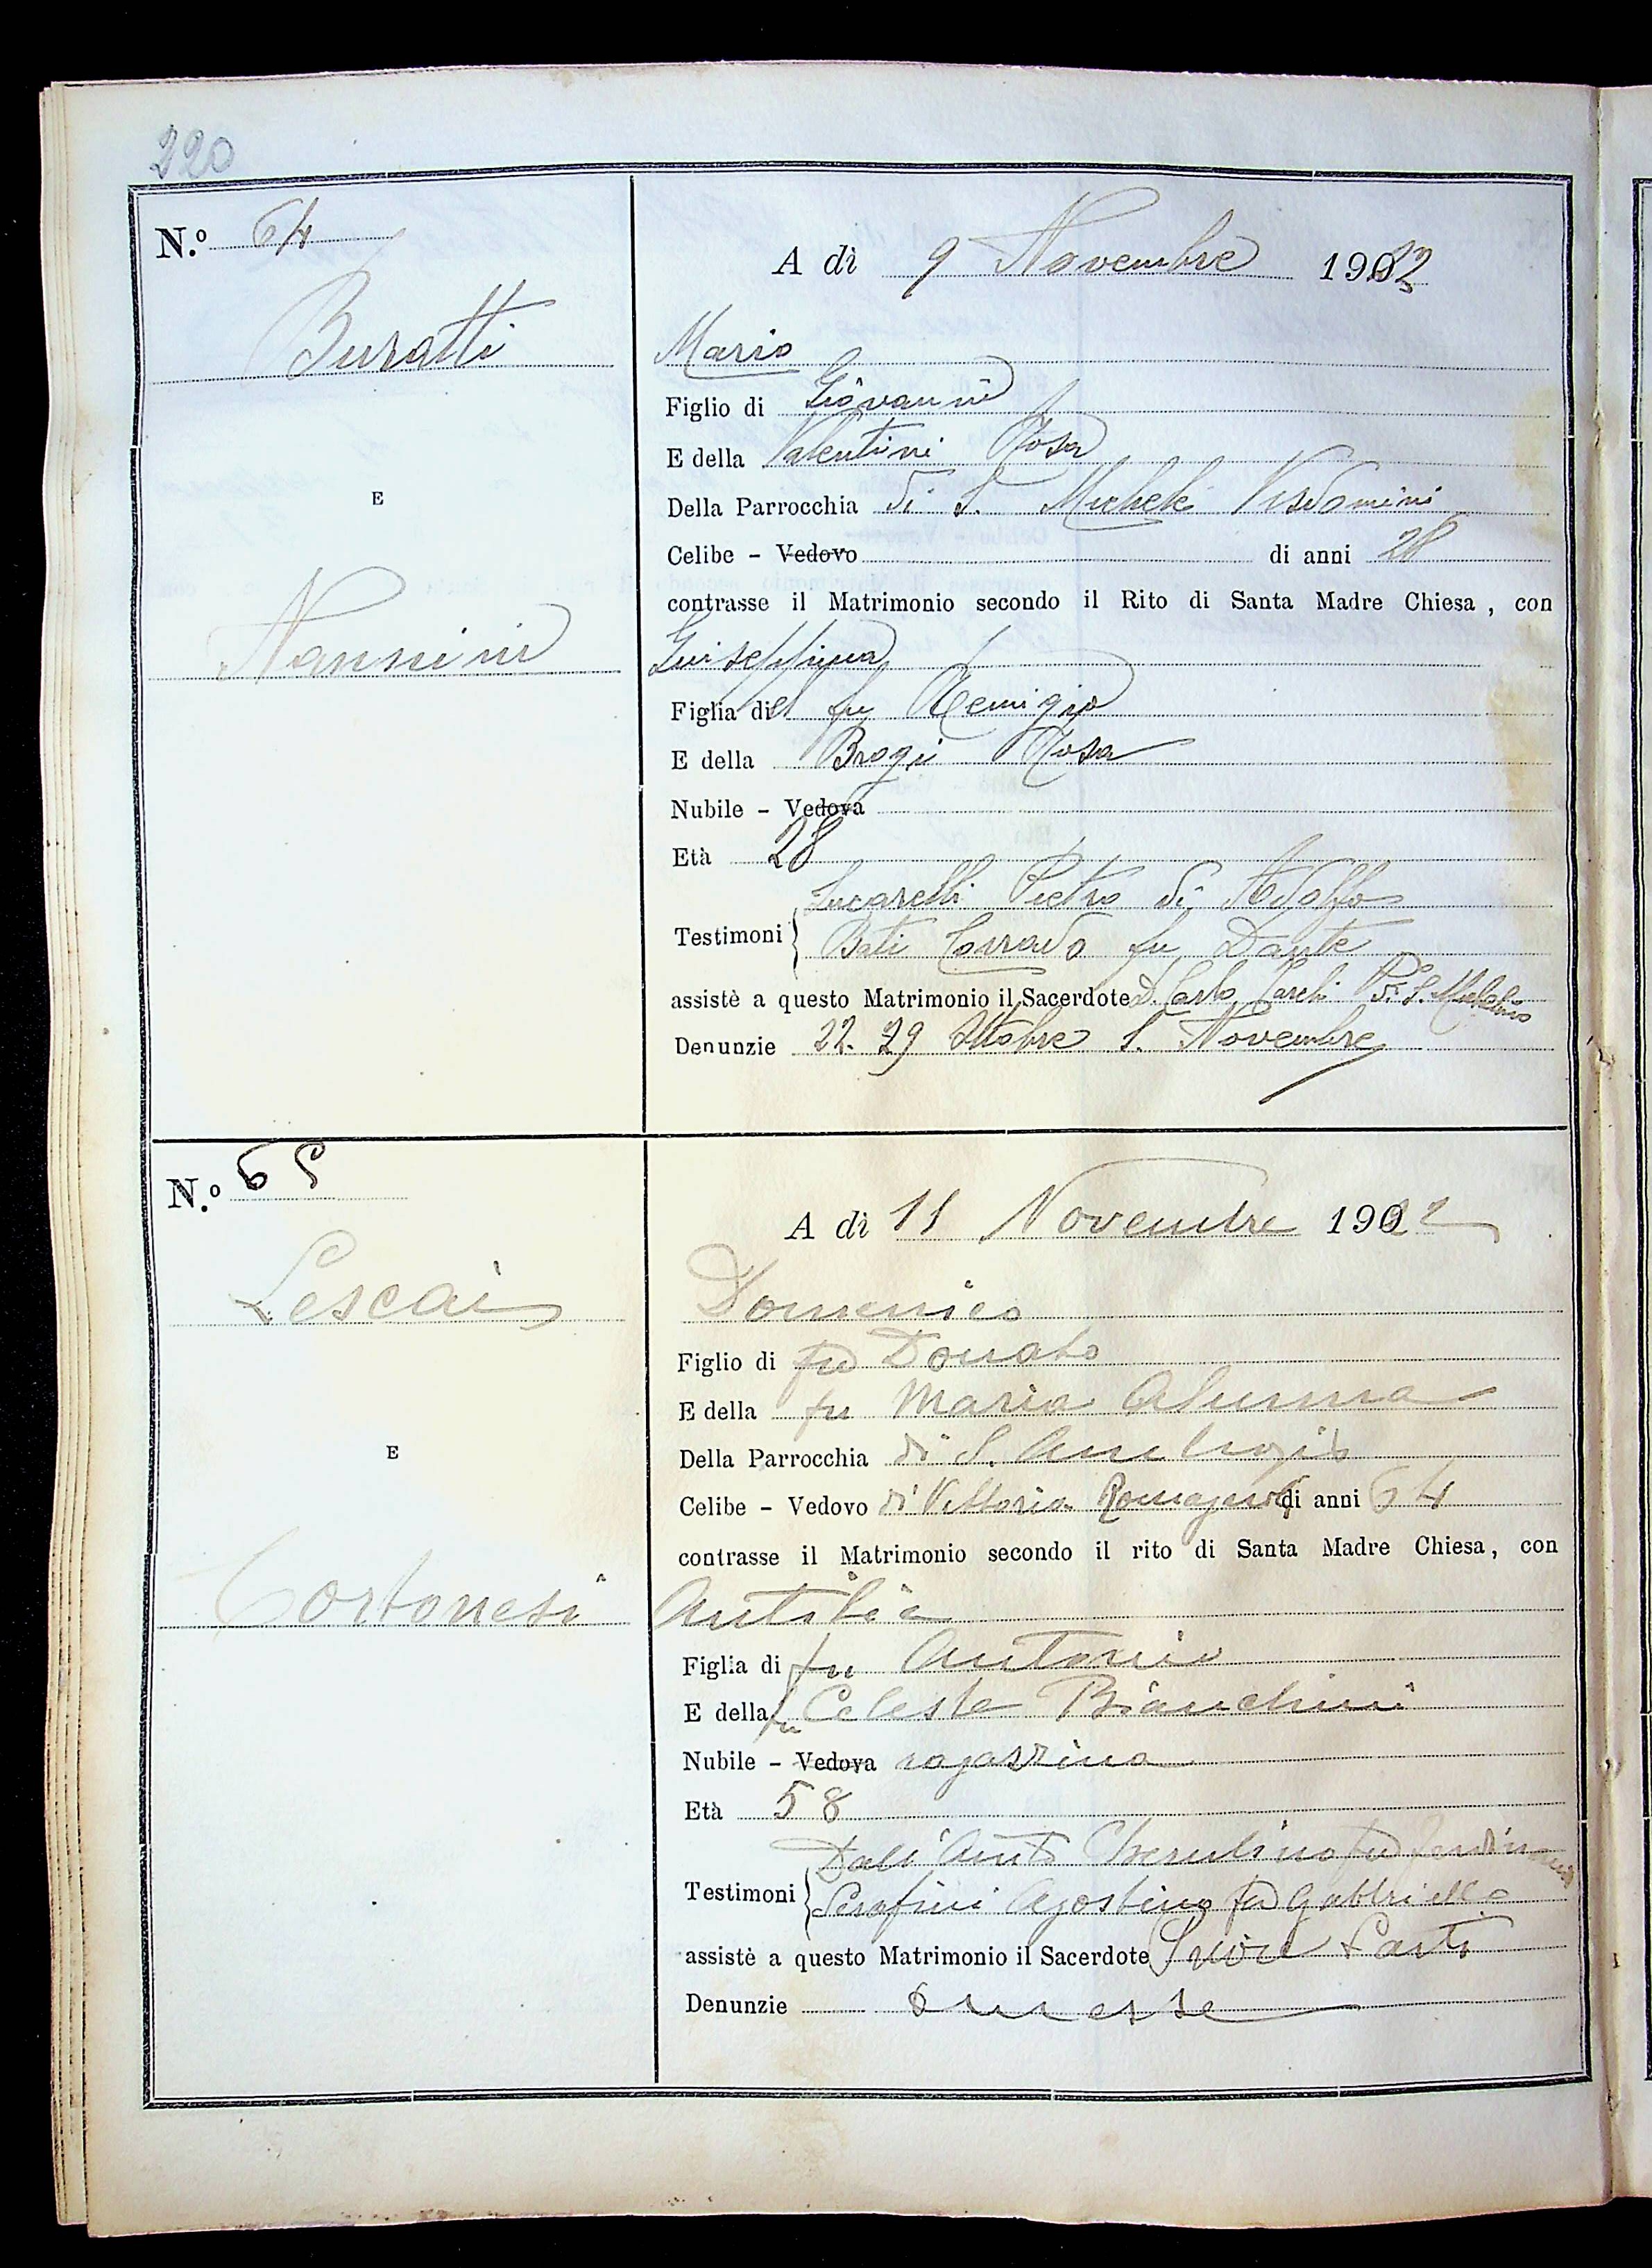 220
N.º 64
A dì 9 Novembre 1922
Buratti
Mario
Figlio di Giovanni
E della Valentini Rosa
Della Parrocchia di S. Michele Visdomini
E
Celibe - Vedovo di anni 28
contrasse il Matrimonio secondo il Rito di Santa Madre Chiesa, con
Nannini
Giuseppina
Figlia del fu Remigio
E della Brogi Rosa
Nubile - Vedova
Età 28
Lucarelli Pietro di Adolfo
Testimoni Bati Corrado fu Dante
assistè a questo Matrimonio il Sacerdote D. Carlo di S.
Denunzie 22. 29 Ottobre 1. Novembre
N.º 65
A dì 11 Novembre 1922
Lescai
Domenico
Figlio di fu Donato
E della fu Maria Alunna
Della Parrocchia di S. Ambrogio
E
Celibe - Vedovo di Vittoria Romagnoli di anni 64
contrasse il Matrimonio secondo il rito di Santa Madre Chiesa, con
Cortonesi
Antilia
Figlia di fu Antonio
E della fu Celeste Bianchini
Nubile - Vedova ragazzina
Età 58
Cherubino fu
Testimoni Serafini Agostino fu Gabbriello
assistè a questo Matrimonio il Sacerdote
Denunzie Omesse